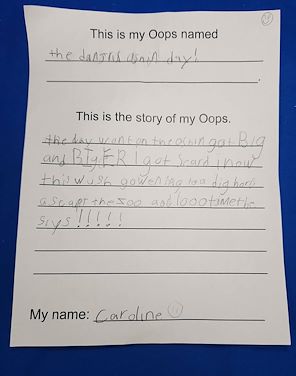 This is my Oops named
the danjris asnin day!
This is the story of my Oops.
the day went on the osnin got BIG
and BIGER I got scard i new
this wush gowening to a dig
the zoo add 1000 time the
siys!!!!!
My name: Caroline